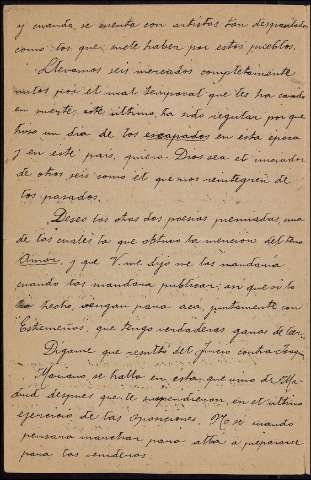 y cuando se cuenta con artistas tan desgraciados
como los que suele haber por estos pueblos.
Llevamos seis mercados completamente
malos por el mal temporal que les ha caido
en suerte; este último, ha sido regular por que
hizo un dia de los escapados en esta época
y en este pais, quiera Dios sea el
de otros seis como el que nos reintegren de
los pasados.
Deseo las otras dos poesias premiadas, una
de las cuales la que obtuvo la mencion del tema
Amor, y que V. me dijo me las mandaria
cuando las mandara publicar; asi que si lo
ha hecho, vengan para aca, juntamente con
Estremeños, que tengo verdaderas ganas de
Digame que resultó del Juicio contra
Mariano, se halla en esta, que vino de Ma
drid despues que le suspendieron, en el último
ejercicio de las oposiciones. No se cuando
pensara marchar para alla a prepararse
para las venideras